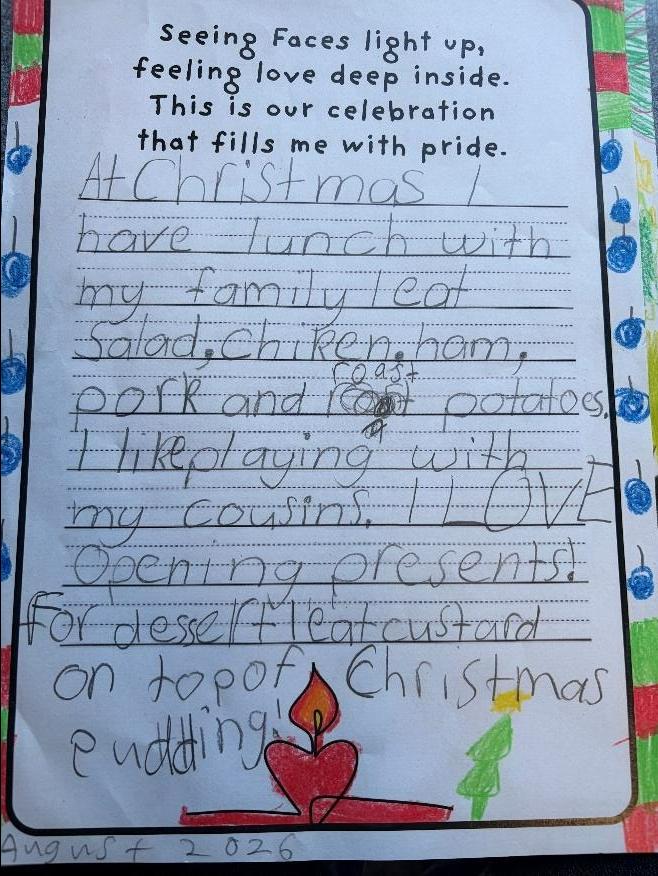 Seeing Faces light up,
feeling love deep inside.
This is our celebration
that fills me with pride.
At Christmas I
have lunch with
my family I eat
Salad, Chiken, ham,
roast
pork and potatoes.
I like playing with
my cousins. I LOVE
Opening presents!
For dessert I eat custard
on top of Christmas
pudding!
August 2026